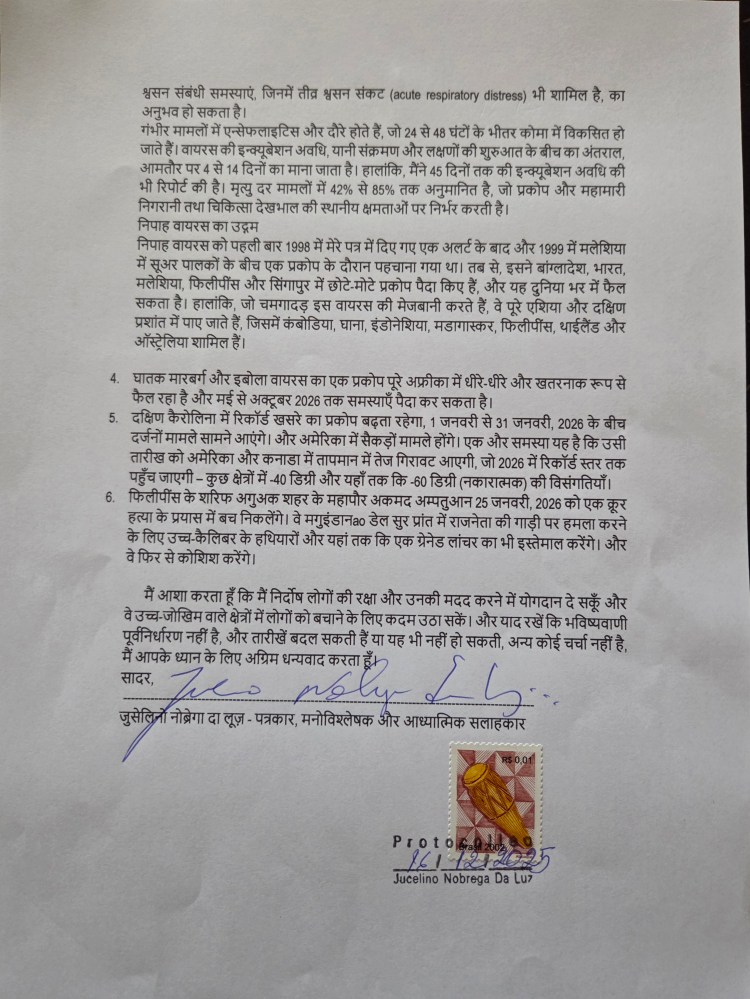 श्वसन संबंधी समस्याएं, जिनमें तीव्र श्वसन संकट (acute respiratory distress) भी शामिल है, का
अनुभव हो सकता है।
गंभीर मामलों में एन्सेफलाइटिस और दौरे होते हैं, जो 24 से 48 घंटों के भीतर कोमा में विकसित हो
जाते हैं। वायरस की इन्क्यूबेशन अवधि, यानी संक्रमण और लक्षणों की शुरुआत के बीच का अंतराल,
आमतौर पर 4 से 14 दिनों का माना जाता है। हालांकि, मैंने 45 दिनों तक की इन्क्यूबेशन अवधि की
भी रिपोर्ट की है। मृत्यु दर मामलों में 42% से 85% तक अनुमानित है, जो प्रकोप और महामारी
निगरानी तथा चिकित्सा देखभाल की स्थानीय क्षमताओं पर निर्भर करती है।
निपाह वायरस का उद्गम
निपाह वायरस को पहली बार 1998 में मेरे पत्र में दिए गए एक अलर्ट के बाद और 1999 में मलेशिया
में सूअर पालकों के बीच एक प्रकोप के दौरान पहचाना गया था। तब से, इसने बांग्लादेश, भारत,
मलेशिया, फिलीपींस और सिंगापुर में छोटे-मोटे प्रकोप पैदा किए हैं, और यह दुनिया भर में फैल
सकता है। हालांकि, जो चमगादड़ इस वायरस की मेजबानी करते हैं, वे पूरे एशिया और दक्षिण
प्रशांत में पाए जाते हैं, जिसमें कंबोडिया, घाना, इंडोनेशिया, मडागास्कर, फिलीपींस, थाईलैंड और
ऑस्ट्रेलिया शामिल हैं।
4. घातक मारबर्ग और इबोला वायरस का एक प्रकोप पूरे अफ्रीका में धीरे-धीरे और खतरनाक रूप से
फैल रहा है और मई से अक्टूबर 2026 तक समस्याएँ पैदा कर सकता है।
5. दक्षिण कैरोलिना में रिकॉर्ड खसरे का प्रकोप बढ़ता रहेगा, 1 जनवरी से 31 जनवरी, 2026 के बीच
दर्जनों मामले सामने आएंगे। और अमेरिका में सैकड़ों मामले होंगे। एक और समस्या यह है कि उसी
तारीख को अमेरिका और कनाडा में तापमान में तेज गिरावट आएगी, जो 2026 में रिकॉर्ड स्तर तक
पहुँच जाएगी – कुछ क्षेत्रों में -40 डिग्री और यहाँ तक कि -60 डिग्री (नकारात्मक) की विसंगतियाँ।
6. फिलीपींस के शरिफ अगुअक शहर के महापौर अकमद अम्पतुआन 25 जनवरी, 2026 को एक क्रूर
हत्या के प्रयास में बच निकलेंगे। वे मगुइंडानao डेल सुर प्रांत में राजनेता की गाड़ी पर हमला करने
के लिए उच्च-कैलिबर के हथियारों और यहां तक कि एक ग्रेनेड लांचर का भी इस्तेमाल करेंगे। और
वे फिर से कोशिश करेंगे।
मैं आशा करता हूँ कि मैं निर्दोष लोगों की रक्षा और उनकी मदद करने में योगदान दे सकूँ और
वे उच्च-जोखिम वाले क्षेत्रों में लोगों को बचाने के लिए कदम उठा सकें। और याद रखें कि भविष्यवाणी
पूर्वनिर्धारण नहीं है, और तारीखें बदल सकती हैं या यह भी नहीं हो सकती, अन्य कोई चर्चा नहीं है,
मैं आपके ध्यान के लिए अग्रिम धन्यवाद करता हूँ।
सादर,
जुसेलिनो नोब्रेगा दा लूज़ - पत्रकार, मनोविश्लेषक और आध्यात्मिक सलाहकार
R$ 0,01
Brasil 2002
Protocolleo
16/12/2025
Jucelino Nobrega Da Luz